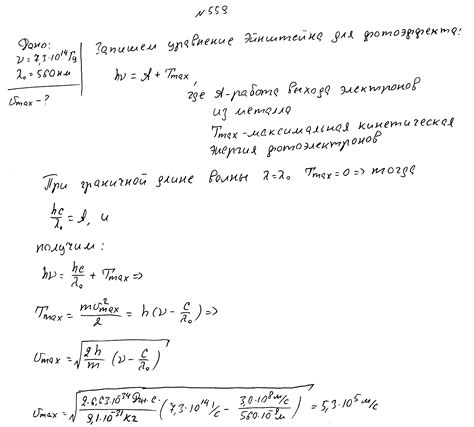 № 559
Дано:
ν = 7,3·10¹⁴ Гц
λ₀ = 560 нм
υmax - ?
Запишем уравнение Эйнштейна для фотоэффекта:
hν = A + Tmax,
где A-работа выхода электронов
из металла
Tmax-максимальная кинетическая
энергия фотоэлектронов
При граничной длине волны λ=λ₀ Tmax=0 => тогда
hc/λ₀ = A, и
получим:
hν = hc/λ₀ + Tmax =>
Tmax = mυ²max/2 = h(ν - c/λ₀) =>
υmax = √(2h/m (ν - c/λ₀))
υmax = √(2·6,63·10⁻³⁴ Дж·с/9,1·10⁻³¹ кг (7,3·10¹⁴ 1/с - 3,0·10⁸ м/с/560·10⁻⁹ м)) = 5,3·10⁵ м/с